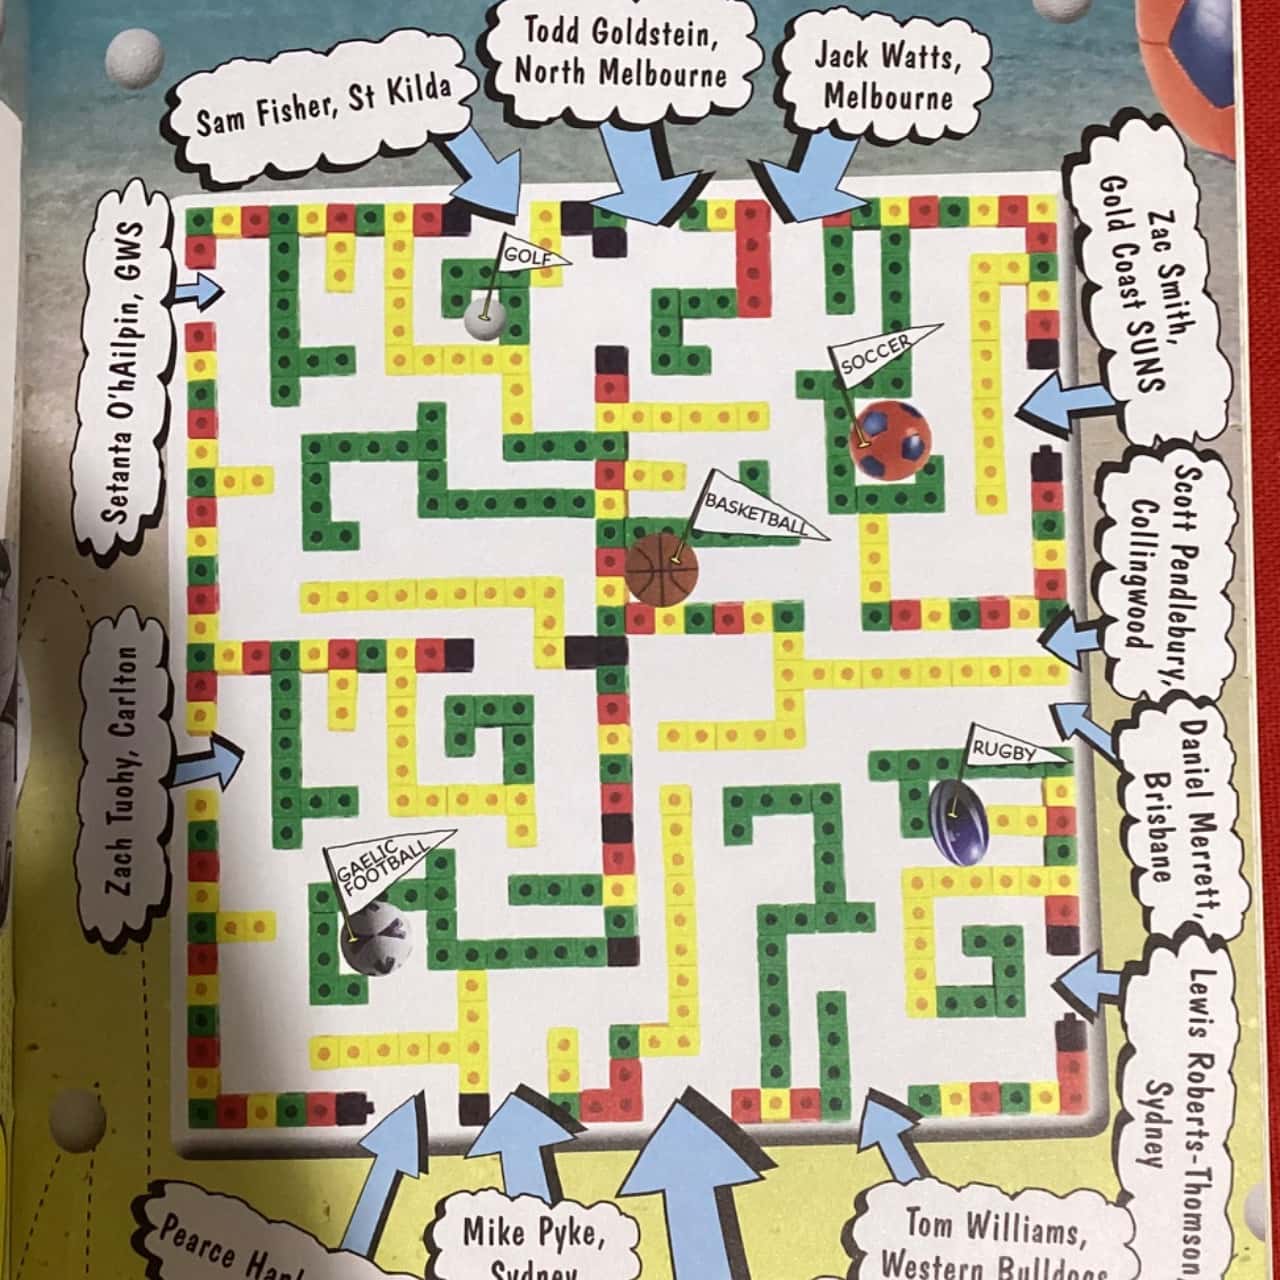 Sam Fisher, St Kilda
Todd Goldstein,
North Melbourne
Jack Watts,
Melbourne
Zac Smith,
Gold Coast SUNS
Setanta O'hAilpin, GWS
GOLF
SOCCER
BASKETBALL
Scott Pendlebury,
Collingwood
Zach Tuohy, Carlton
RUGBY
Daniel Merrett,
Brisbane
GAELIC
FOOTBALL
Lewis Roberts-Thomson
Sydney
Pearce
Mike Pyke,
Sydney
Tom Williams,
Western Bulldogs